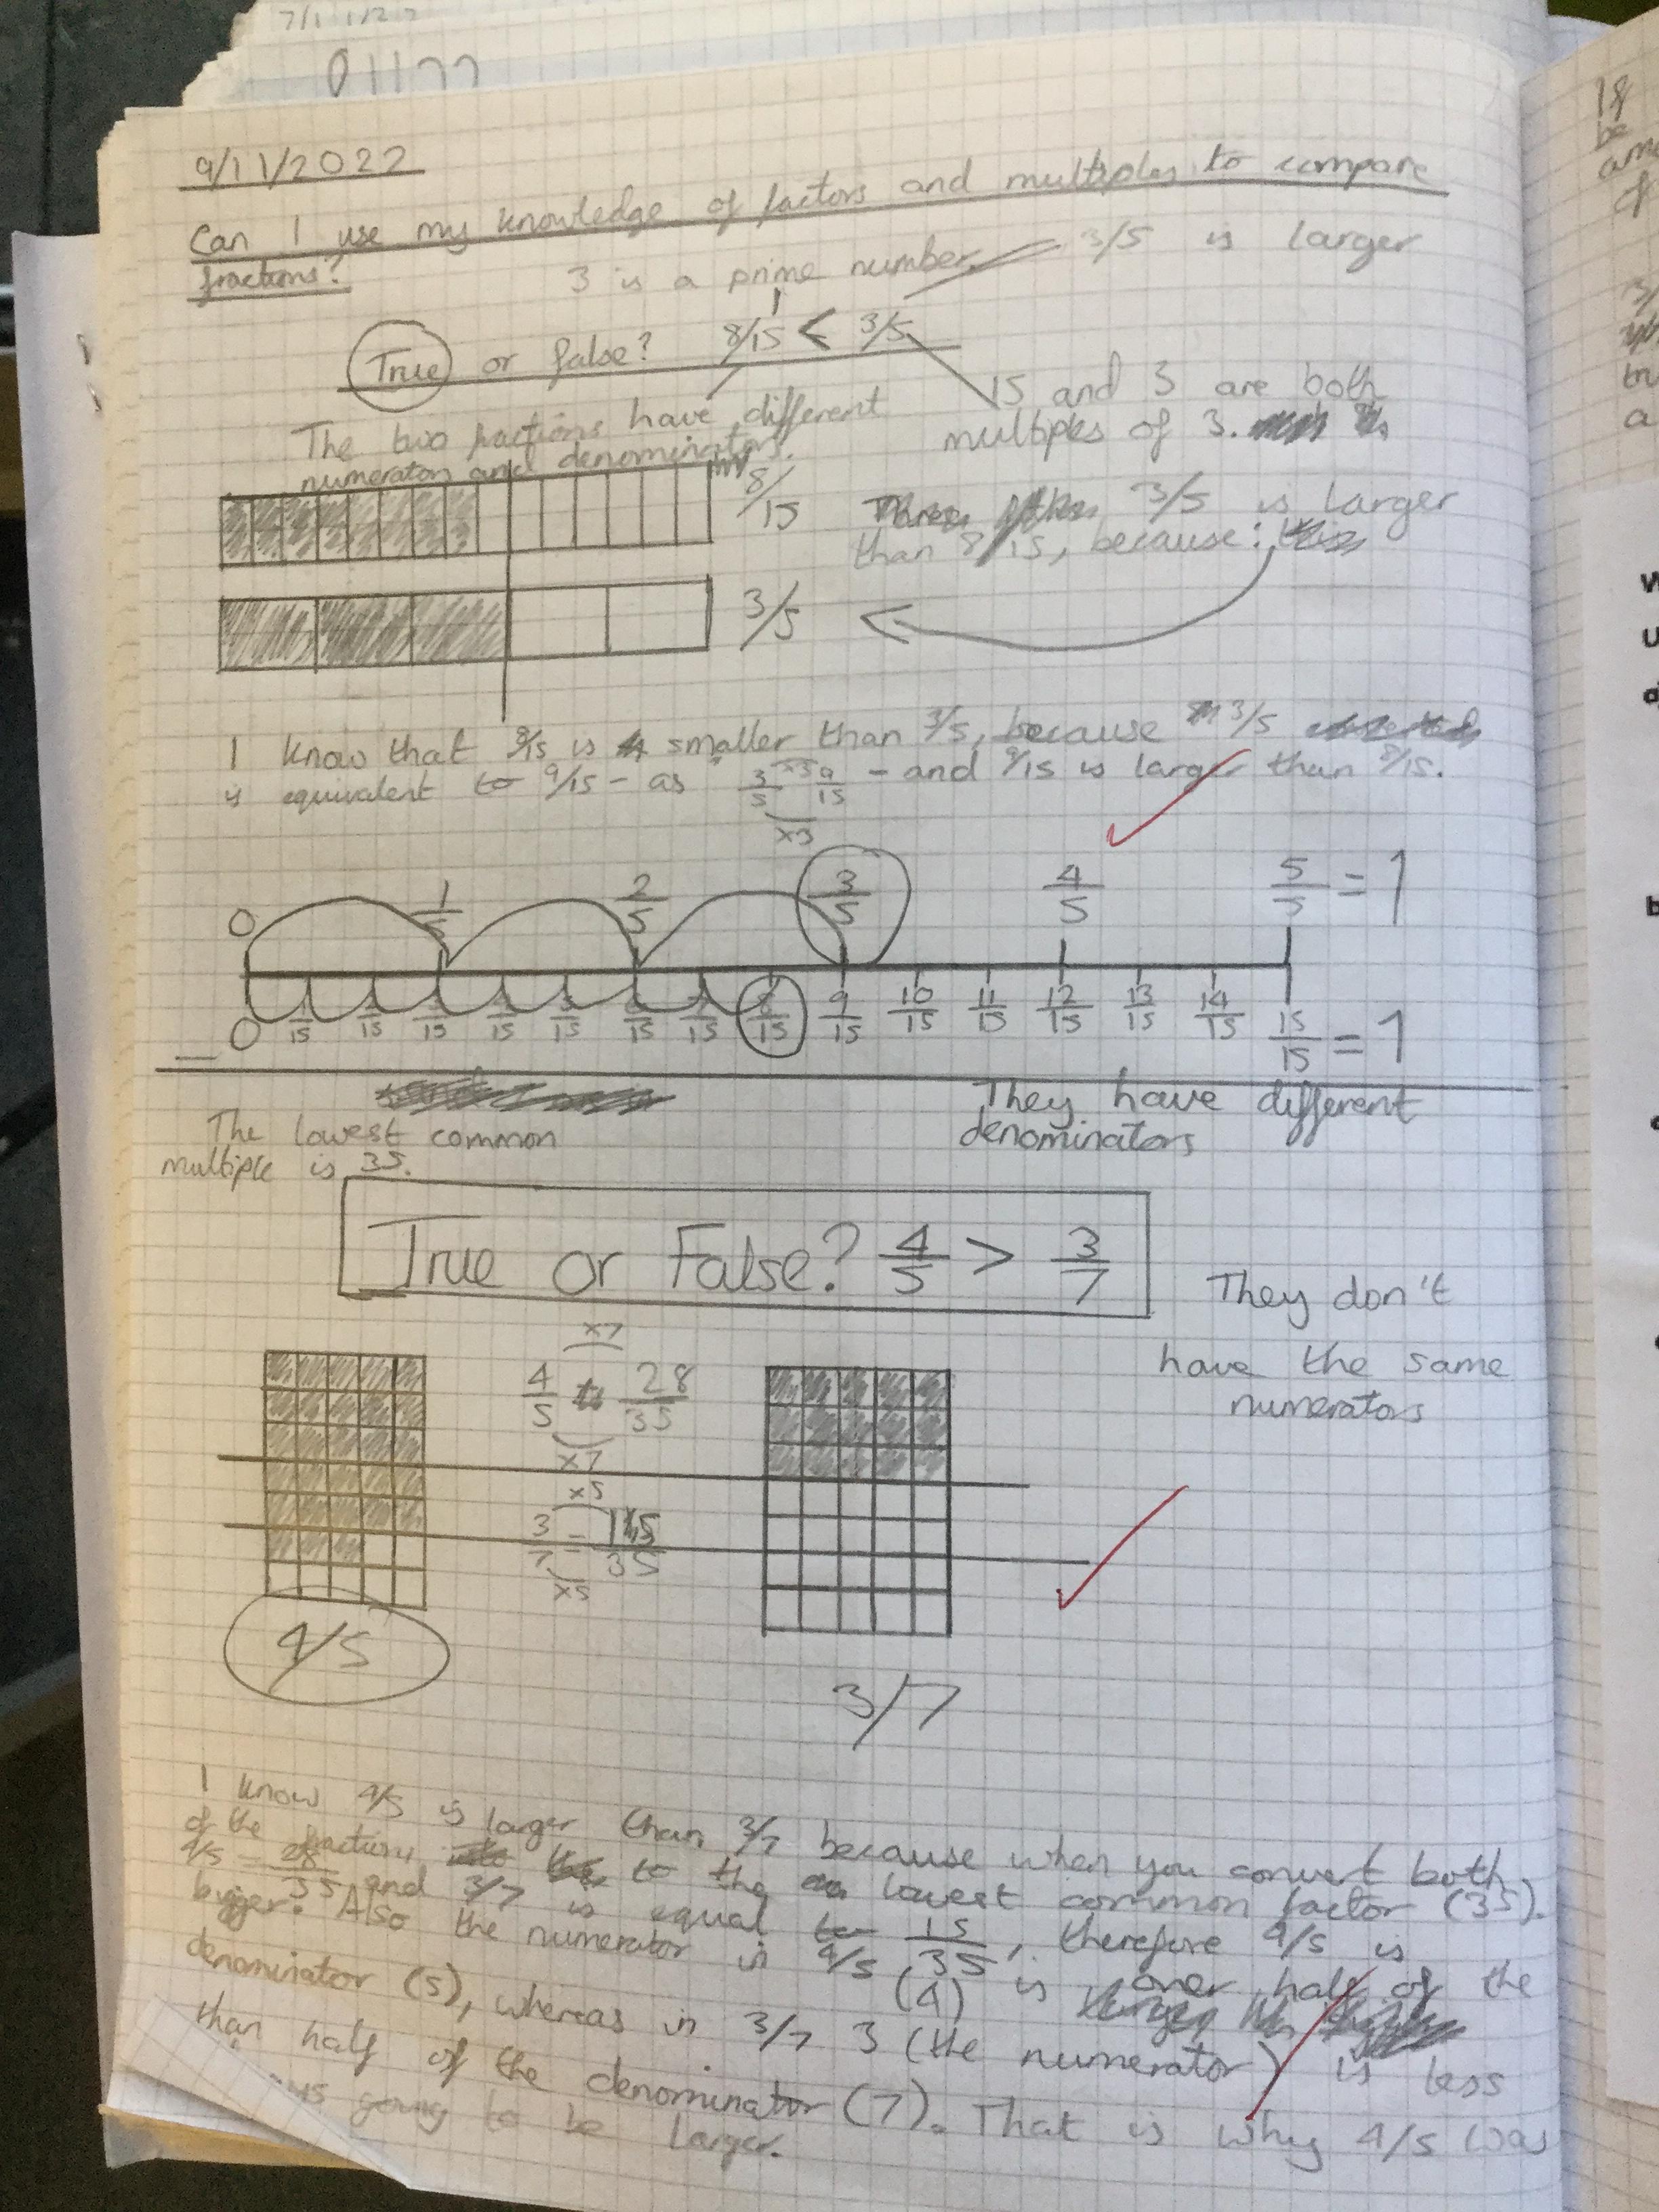 9/11/2022
Can I use my knowledge of factors and multiples to compare
fractions?
3 is a prime number.
3/5 is larger
True or false? 8/15 < 3/5
The two fractions have different
numerators and denominators.
15 and 3 are both
multiples of 3.
8/15
3/5 is larger
than 8/15, because:
3/5
I know that 8/15 is smaller than 3/5, because 3/5
is equivalent to 9/15 - as 3/5 x3 9/15 - and 9/15 is larger than 8/15.
x3
0 1/5 2/5 3/5 4/5 5/5 = 1
0 1/15 2/15 3/15 4/15 5/15 6/15 7/15 8/15 9/15 10/15 11/15 12/15 13/15 14/15 15/15 = 1
The lowest common
multiple is 35.
They have different
denominators
True or False? 4/5 > 3/7
They don't
have the same
numerators
x7
4/5 28/35
x7
x5
3/7 = 15/35
x5
4/5
3/7
I know 4/5 is larger than 3/7 because when you convert both
of the fractions to the lowest common factor (35).
4/5 = 28/35 and 3/7 is equal to 15/35, therefore 4/5 is
bigger. Also the numerator in 4/5 (4) is over half of the
denominator (5), whereas in 3/7 3 (the numerator) is less
than half of the denominator (7). That is why 4/5 was
going to be larger.